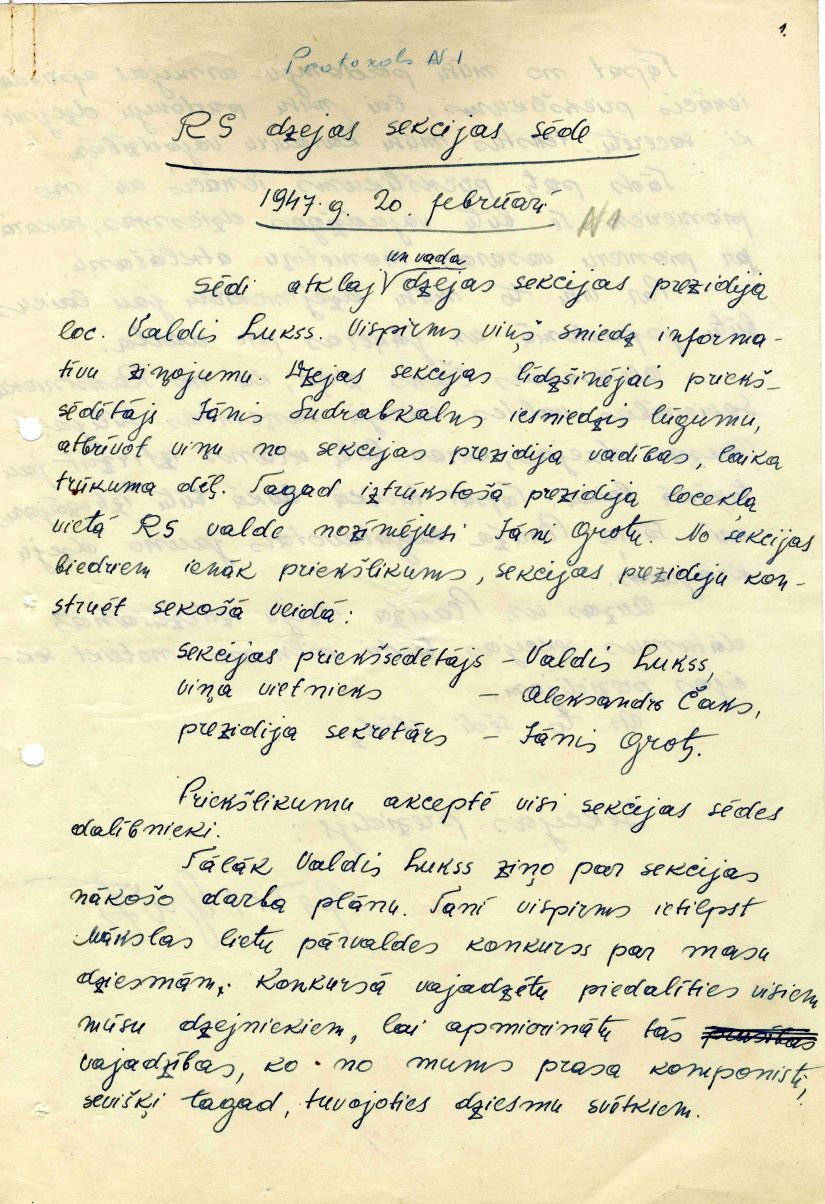 1.
Protokols N 1
RS dzejas sekcijas sēde
1947. g. 20. februārī
N1
un vada
Sēdi atklaj √ dzejas sekcijas prezidija
loc. Valdis Lukss. Vispirms viņš sniedz informa-
tīvu ziņojumu. Dzejas sekcijas līdzšinējais priekš-
sēdētājs Jānis Sudrabkalns iesniedzis lūgumu,
atbrīvot viņu no sekcijas prezidija vadības, laika
trūkuma dēļ. Tagad iztrūkstošā prezidija locekļa
vietā RS valde nozīmējusi Jāni Grotu. No sekcijas
biedriem ienāk priekšlikums, sekcijas prezidiju kon-
struēt sekošā veidā:
sekcijas priekšsēdētājs – Valdis Lukss,
viņa vietnieks – Aleksandrs Čaks,
prezidija sekretārs – Jānis Grots.
Priekšlikumu akceptē visi sekcijas sēdes
dalībnieki.
Tālāk Valdis Lukss ziņo par sekcijas
nākošo darba plānu. Tanī vispirms ietilpst
Mākslas lietu pārvaldes konkurss par masu
dziesmām. Konkursā vajadzētu piedalīties visiem
mūsu dzejniekiem, lai apmierinātu tās prasības
vajadzības, ko no mums prasa komponisti,
sevišķi tagad, tuvojoties dziesmu svētkiem.